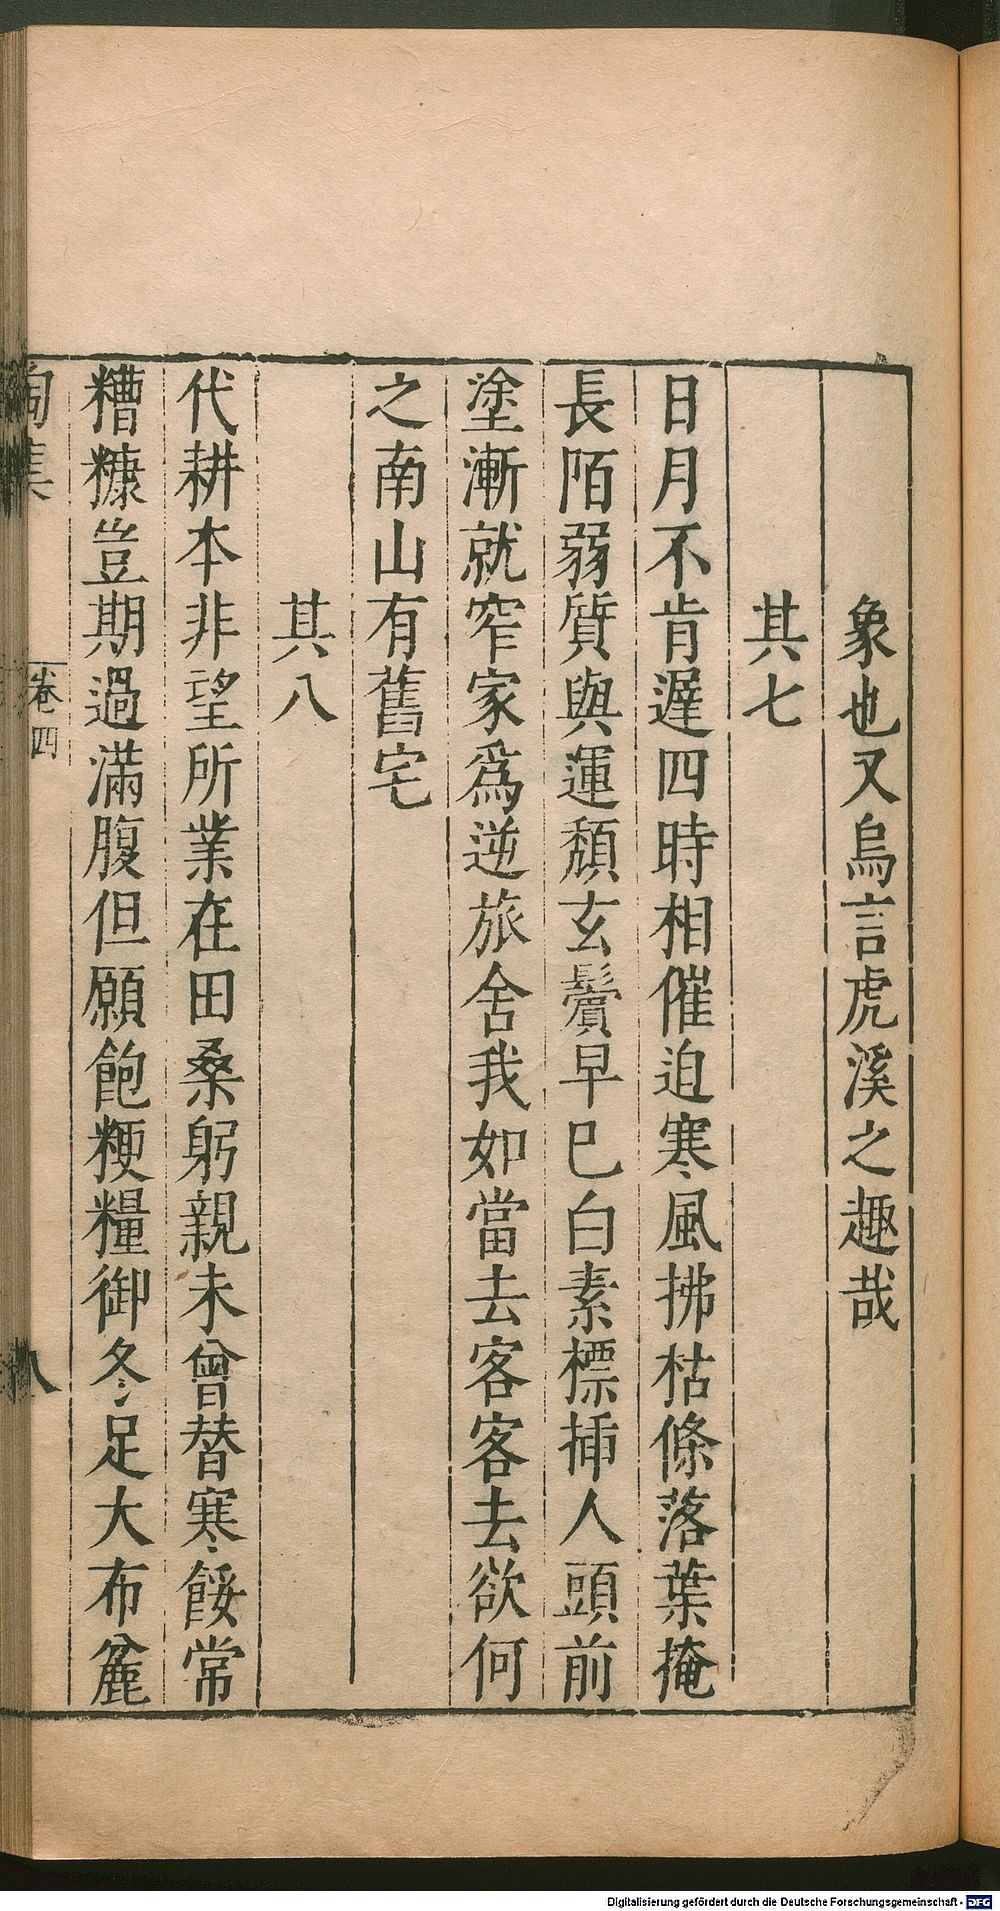 象也又烏言虎溪之趣哉
其七
日月不肯遲四時相催迫寒風拂枯條落葉掩
長陌弱質與運頹玄鬢早已白素標揷人頭前
塗漸就窄家爲逆旅舍我如當去客客去欲何
之南山有舊宅
其八
代耕本非望所業在田桑躬親未曾替寒餒常
糟糠豈期過滿腹但願飽粳糧御冬足大布麄
陶集
卷四
八
Digitalisierung gefördert durch die Deutsche Forschungsgemeinschaft - DFG